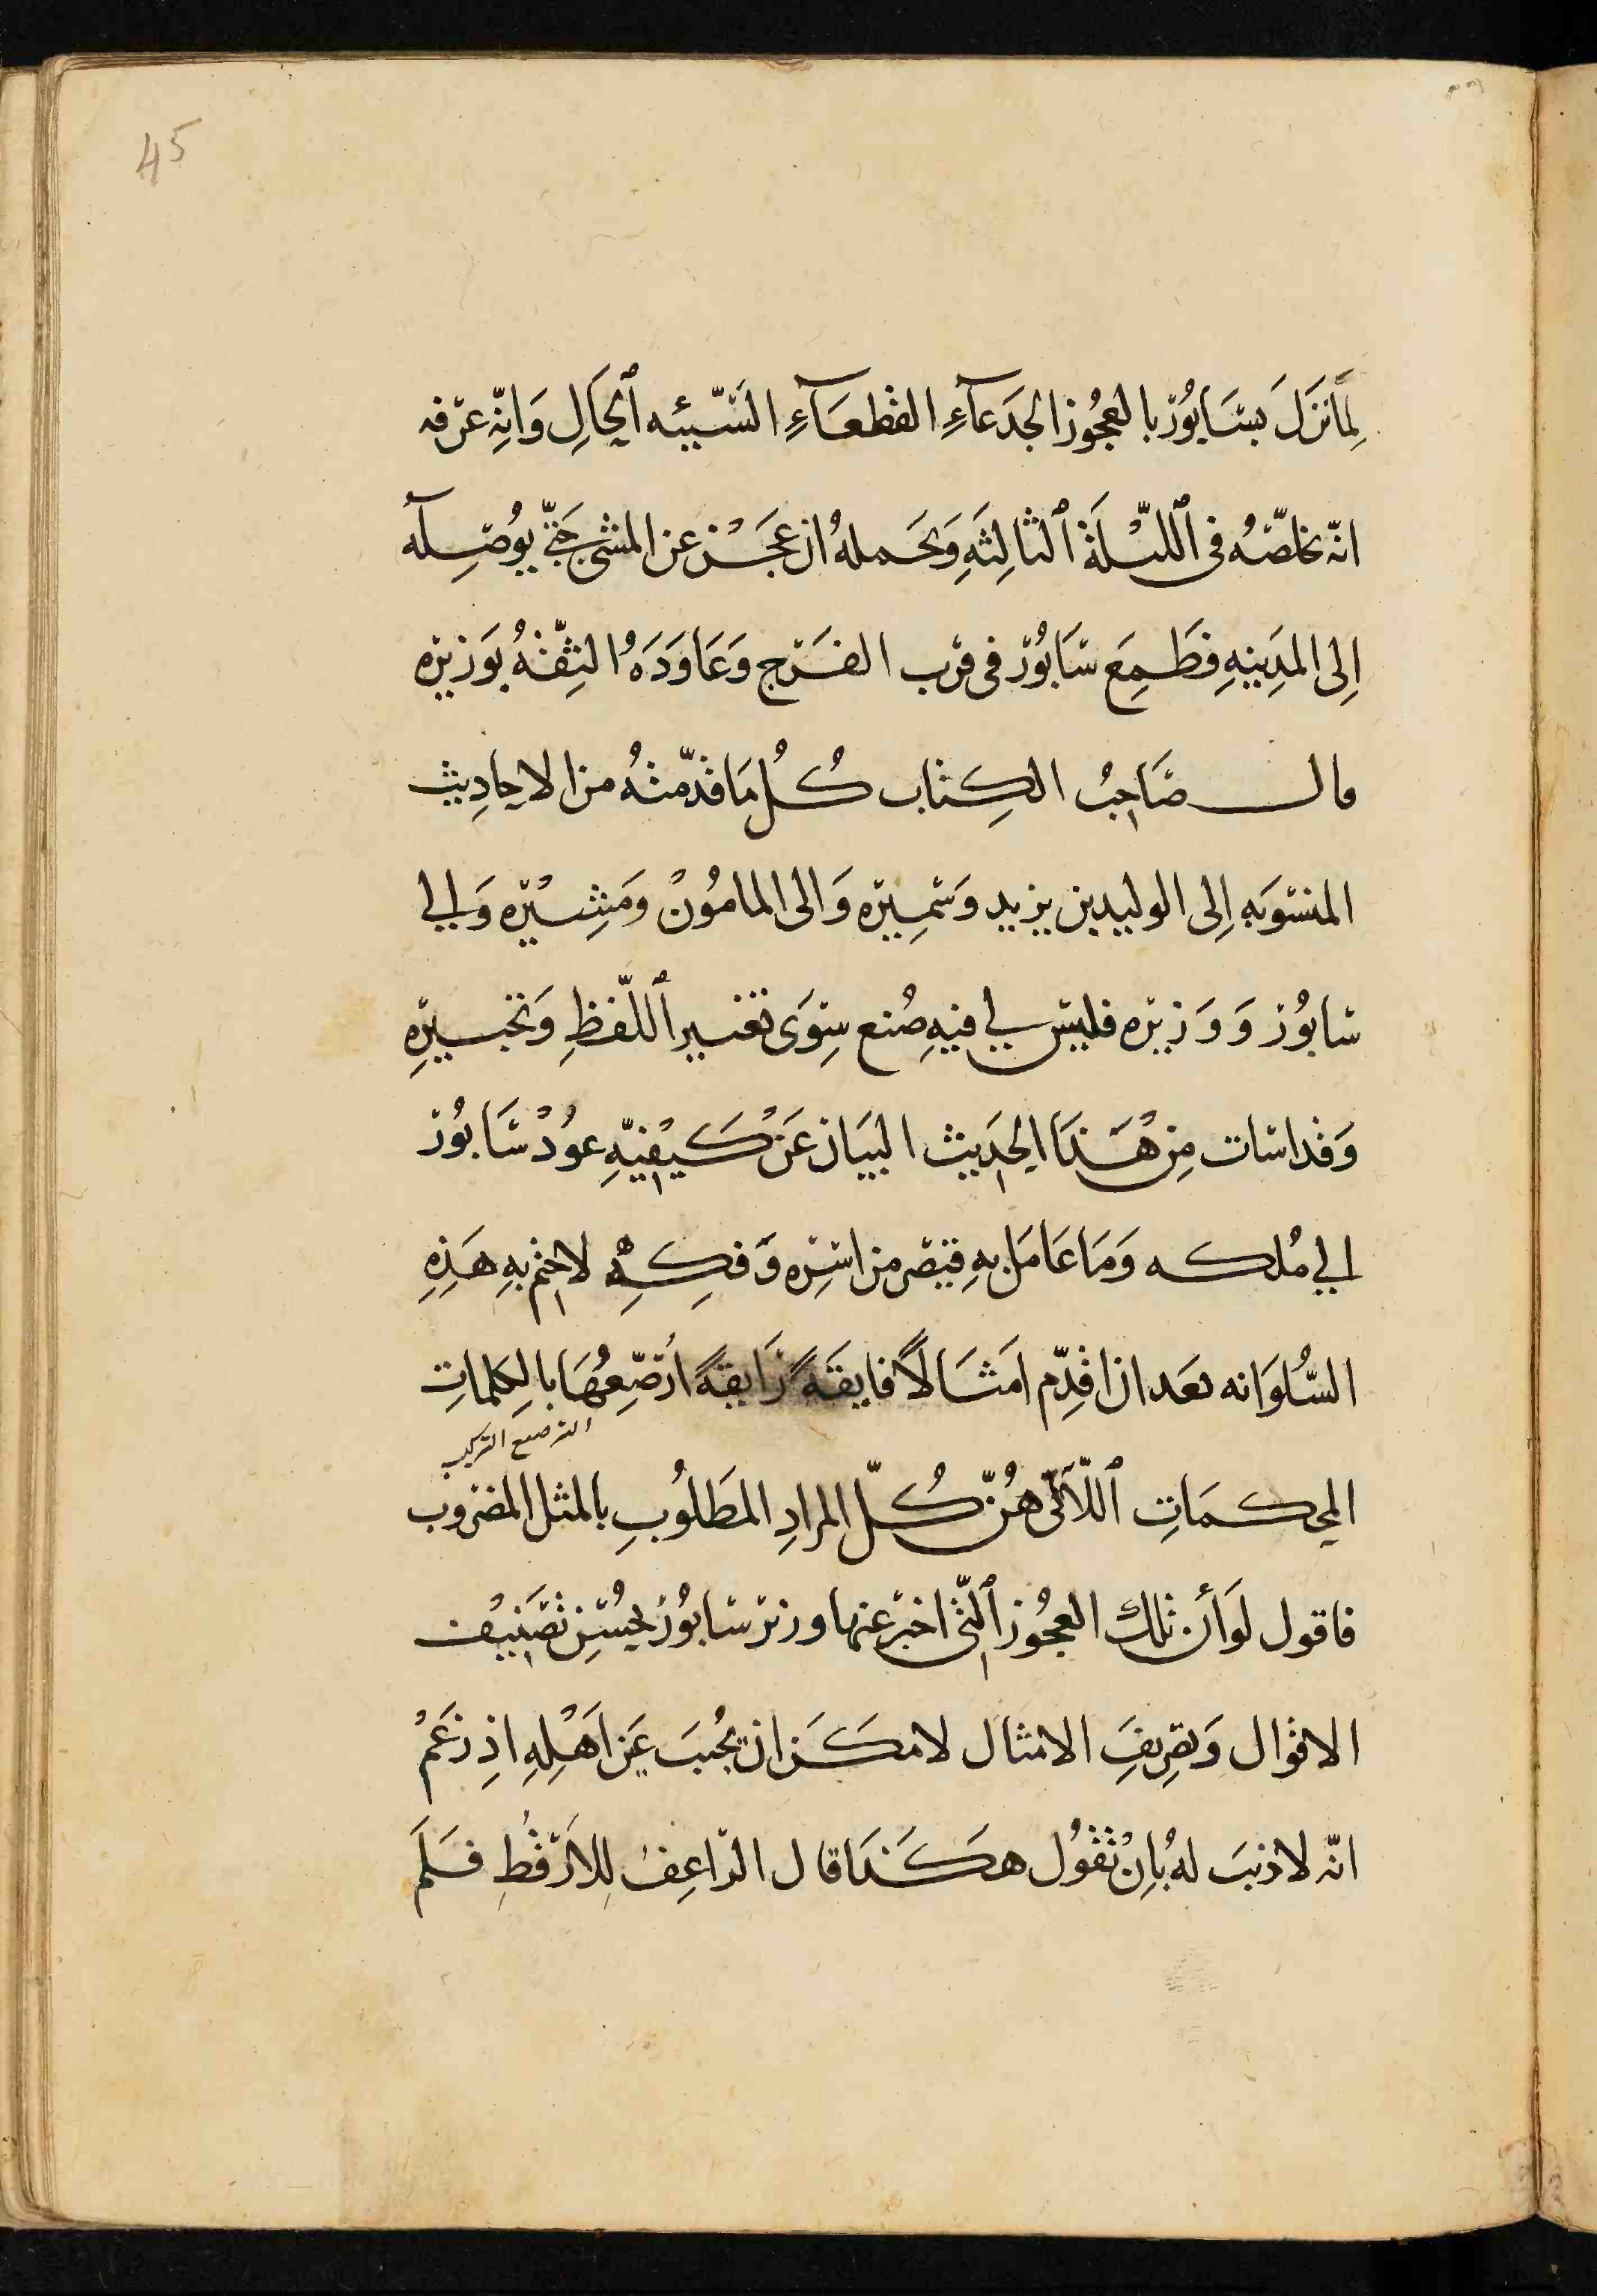 45
لِمَا نَزَلَ بسَابُوْر بالعجُوز الجَدعآءِ القطعَآءِ السَّيّئه ٱلحَالِ وَانّه عرّفه
انّه يخلصّهُ فى ٱللّيْلَة ٱلثالِثَهِ وَيحَملهُ ان عجَز عن المشىِ حَتّى يُوصِلَه
اِلى المدِينهِ فطَمِعَ سَابُوْر فى قرب الفَرَج وَعَاوَدَهُ الثِقَّةُ بوَزيره
قال صَاحِبُ الكِتاب كُل مَا قدّمتهُ من الاحادِيث
المنسوَبه اِلى الوليد بن يزيد وَسَمِيره وَالى المامُوْن ومَشِيْره وَالى
سابُوْر وَوَزيره فليس لى فيهِ صُنع سِوَى تغيير ٱللّفظِ وَتحبيرِه
وَقد اسات مِن هَذَا الحَدِيث البيَان عَنْ كَيفيّهِ عوُدْ سَابُوْر
الى مُلكه وَمَا عَامَل بهِ قيصر من اسِره وَفكِهِ لاختم بهِ هَذِهِ
السُّلوَانه بعَد ان اقدِّم امَثَالاً فايقَةً رَايقةً ارُصّعُهَا بالكِلماتِ
الترصيع التركيب
المحكمَاتِ ٱللّآتى هُنّ كُلّ المرادِ المطَلُوبِ بالمثل المضروب
فاقول لوَ أن تلك العجُوز ٱلتّى اخبرَ عنها وزير سَابُوْر بحُسْن تصَنيْف
الاقوَال وَتصرِيفِ الامثال لامكَن ان يُجيَبَ عَن اَهْلِهِ اذِ زعَمْ
انّه لا ذنبَ لهُ بِاَنْ تقُول هكَذَا قال الرّاعِفُ لِلاَرْقُطِ فَلَم